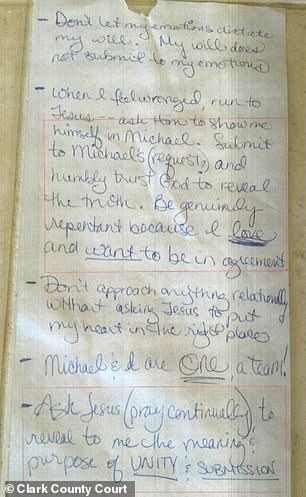 - Don't let my emotions dictate
my will. My will does
not submit to my emotions
- when I feel wronged, run to
Jesus - ask Him to show me
himself in Michael. Submit
to Michael's (requests) and
humbly trust God to reveal
the truth. Be genuinely
repentant because I love
and want to be in agreement
- Don't approach anything relationally
without asking Jesus to put
my heart in the right place
- Michael & I are ONE, a team!
- Ask Jesus (pray continually) to
reveal to me the meaning &
purpose of UNITY & SUBMISSION
© Clark County Court